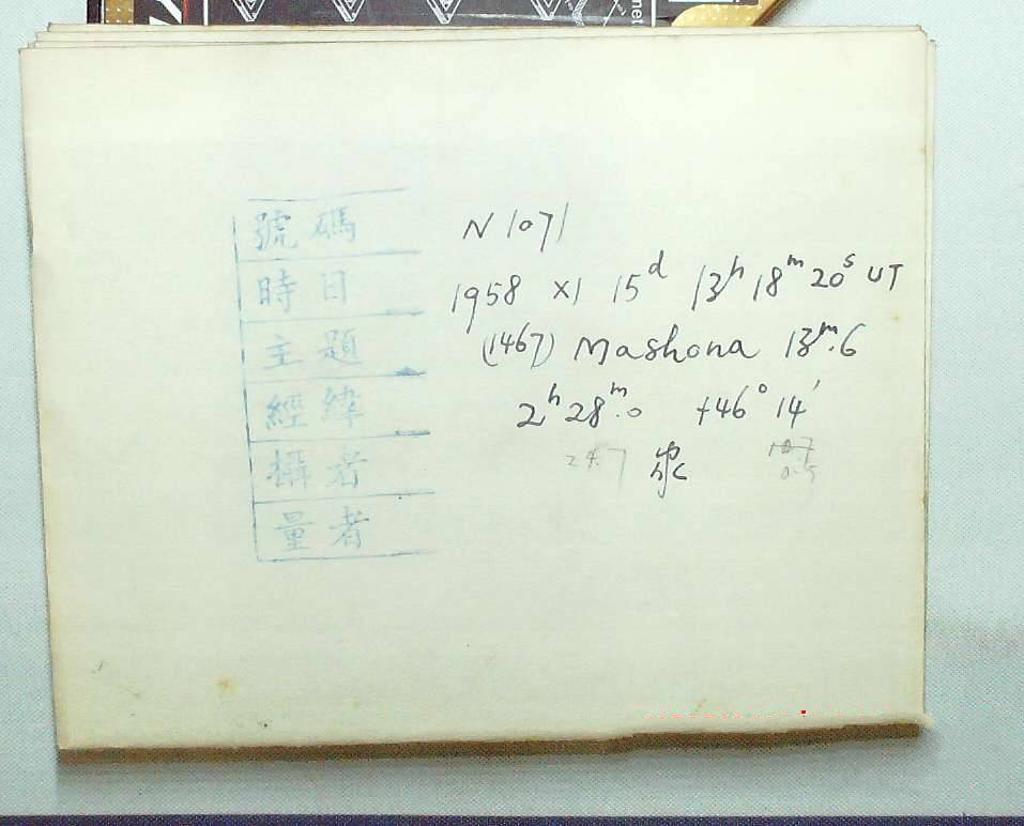 號碼 N 1071
時日 1958 XI 15ᵈ 13ʰ 18ᵐ 20ˢ UT
主題 (1467) Mashona 13ᵐ.6
經緯 2ʰ 28ᵐ.0 +46° 14′
攝者
量者